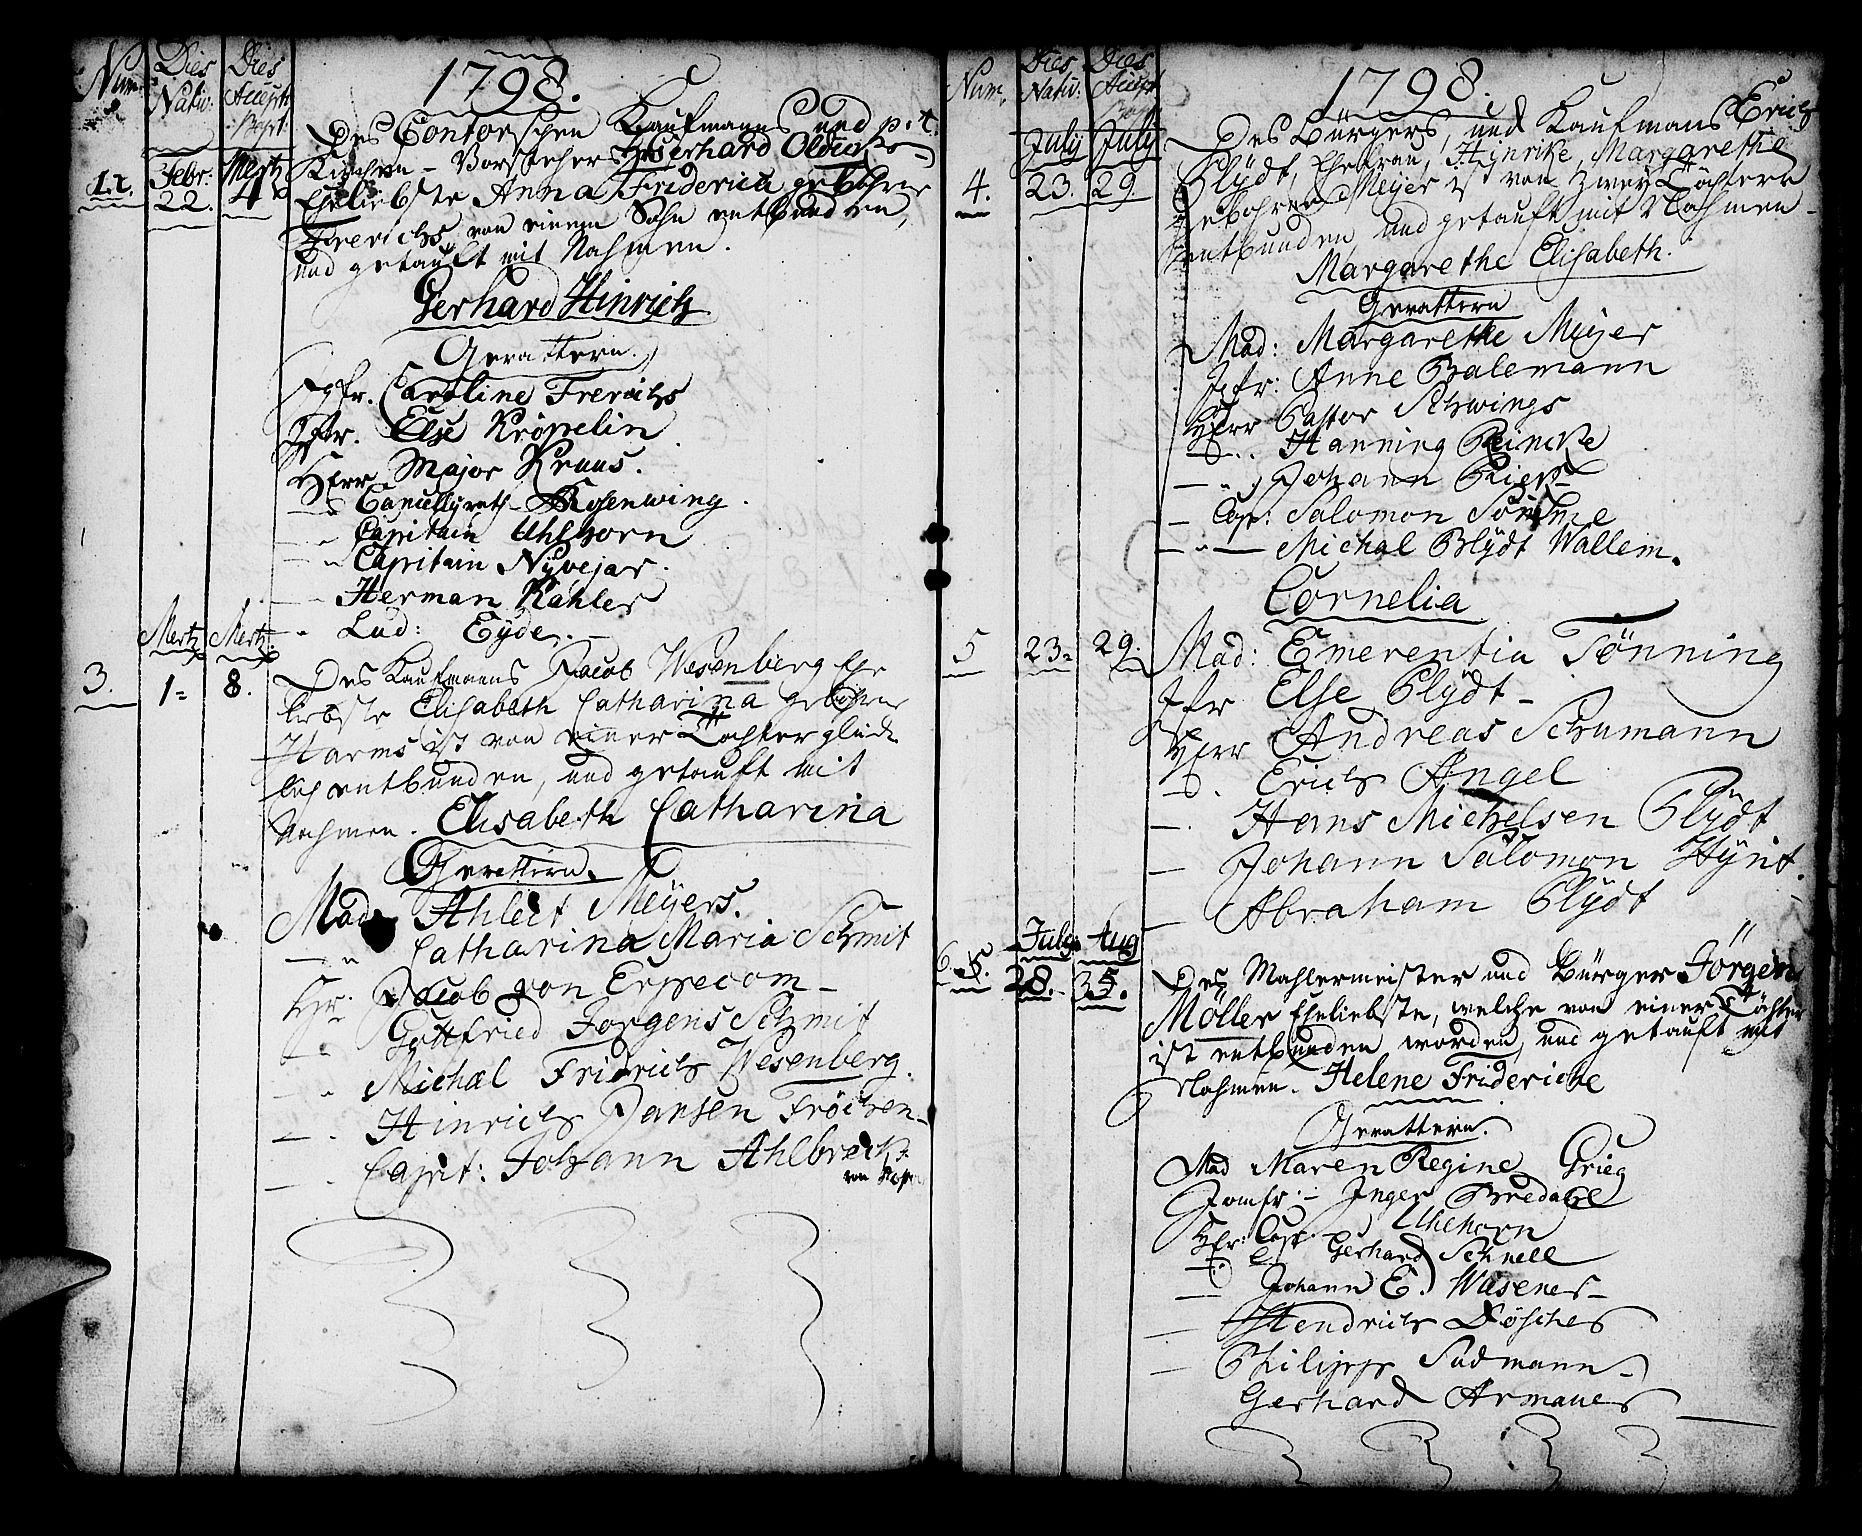 Num.
Dies Nativ:
Dies Accepti Bapt.
1798.
Febr: 22.
Mertz 4
Des Contorschen Kaufmanns und p: t.
Kirchen-Vorstehers Gerhard Olden
Eheliebste Anna Friderica gebohrne
Frerichs von einem Sohn entbunden,
und getauft mit Nahmen.
Gerhard Hinrich
Gevattern.
Jgfr. Caroline Frerichs
Jgfr. Else Kröpelin
Herr Major Kruus.
— " Cancellyrath Rosenwing.
— " Capitain Uhlhorn
— " Capitain Nyvejar.
— " Herman Kahler
" Lud: Eyde.
Mertz Mertz
3. 1= 8.
Des Kaufmanns Jacob Wesenberg Ehe
liebste Elisabeth Catharina gebohrne
Harms ist von einer Tochter glück
lich entbunden, und getauft mit
Nahmen. Elisabeth Catharina
Gevattern.
Mad. Ahleit Meyers.
— " Catharina Maria Schmit
Hr. Jacob von Erpecom —
— " Gottfried Jorgens Schmit
— " Michæl Fridrich Wesenberg.
— " Hinrich Jansen Fröchen
— . Capit: Johann Ahlbrecht
von
Num.
Dies Nativ:
Dies Accept Bapt
1798.
July July
4. 23. 29.
Des Bürgers, und Kaufmans Erich
Blÿdt, Ehefrau, Hinrike, Margarethe
gebohren Meyer ist von zwey Töchtern
entbunden und getauft mit Nahmen
Margarethe Elisabeth.
Gevattern
Mad: Margarethe Meyer
Jfr: Anne Balemann
Herr Pastor Schwings
— " Hanning Reincke
— " Johann Rieck
— Cap: Salomon
— " — Michal Blÿdt Wallem.
Cornelia
5 23= 29.
Mad: Emerentia Tönning
Jfr Else Plÿdt —
Herr Andreas Schumann
— . Erich Angel
— . Hans Michelsen Plÿdt.
— Johann Salomon Hÿnt.
— Abraham Plÿdt
July Aug
6. 28. 5.
Des Mahlermeister und Bürger Jörgen
Möller Eheliebste, welche von einer Töchter
ist entbunden worden, und getauft mit
Nahmen. Helene Fridericke
Gevattern.
Mad Maren Regine Grieg
Jomfr: — Inger Bredahl
Hr: Cap Uhehorn
— Gerhard Schnell
— Johann E. Wesener —
— Hendrich Döscher
— Philipp Sudmann
Gerhard Armauer